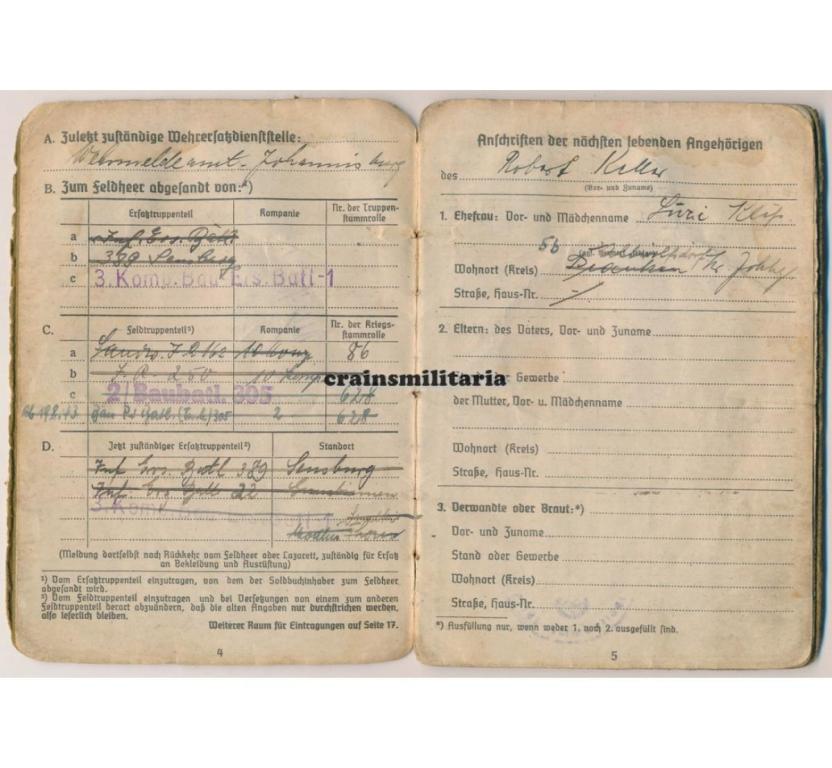 A. Zuletzt zuständige Wehrersatzdienststelle:
Wehrmeldeamt Johannisburg
B. Zum Feldheer abgesandt von:*)
Ersatztruppenteil Kompanie Nr. der Truppen-
stammrolle
a Inf. Ers. Batl
b 389 Sensburg
c 3. Komp. Bau-Ers. Batl-1
C. Feldtruppenteil²) Kompanie Nr. der Kriegs-
stammrolle
a 86
b J. R. 250 10 Komp
c 2/Baubatl. 305 628
Batl. 305 2 628
D. Jetzt zuständiger Ersatztruppenteil²) Standort
Inf Ers. Batl 389 Sensburg
Inf. Ers Batl 22
3. Komp.
(Meldung dortselbst nach Rückkehr vom Feldheer oder Lazarett, zuständig für Ersatz
an Bekleidung und Ausrüstung)
¹) Vom Ersatztruppenteil einzutragen, von dem der Soldbuchinhaber zum Feldheer
abgesandt wird.
²) Vom Feldtruppenteil einzutragen und bei Versetzungen von einem zum anderen
Feldtruppenteil derart abzuändern, daß die alten Angaben nur durchstrichen werden,
also leserlich bleiben.
Weiterer Raum für Eintragungen auf Seite 17.
4
Anschriften der nächsten lebenden Angehörigen
des Robert Keller
(Vor- und Zuname)
1. Ehefrau: Vor- und Mädchenname
Wohnort (Kreis)
Straße, Haus-Nr.
2. Eltern: des Vaters, Vor- und Zuname
der Gewerbe
der Mutter, Vor- u. Mädchenname
Wohnort (Kreis)
Straße, Haus-Nr.
3. Verwandte oder Braut:*)
Vor- und Zuname
Stand oder Gewerbe
Wohnort (Kreis)
Straße, Haus-Nr.
*) Ausfüllung nur, wenn weder 1. noch 2. ausgefüllt sind.
5
crainsmilitaria